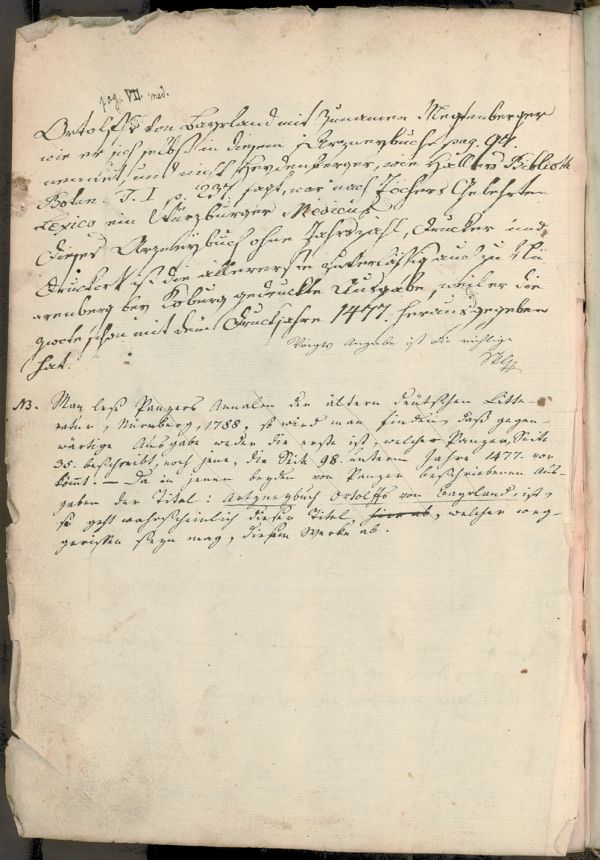 pag. VII. med.
Ortolff von Bayrland mit Zunamen Megtenberger
wie er sich selbst in diesem Arzneybuche pag. 94.
nennet, und nicht Heydenberger, wie Hallers Biblioth.
Botan. T. I p. 237 sagt, war nach Jöchers Gelehrten
Lexico ein Würzburger Medicus.
Dieses Arzneybuch ohne Jahrszahl, Drucker und
Druckort ist die allererste zuverlässig auch zu
gedruckte Ausgabe, weil er die
zwote schon mit dem Druckjahre 1477. herausgegeben
hat.
Voigts Angabe ist die richtige
NB. Man lese Panzers Annalen der ältern deutschen Litte-
ratur, Nürnberg, 1788, so wird man finden, daß gegen-
wärtige Ausgabe weder die erste ist, welche Panzer, Seite
35. beschreibt, noch jene, die Seite 98. unterm Jahre 1477. vor-
kömmt. — Da in jenen beyden von Panzer beschriebenen Aus-
gaben der Titel: Artzneybuch Ortolffs von Bayrland, ist,
so geht wahrscheinlich dieser Titel, welcher weg-
gerissen seyn mag, diesem Werke ab.